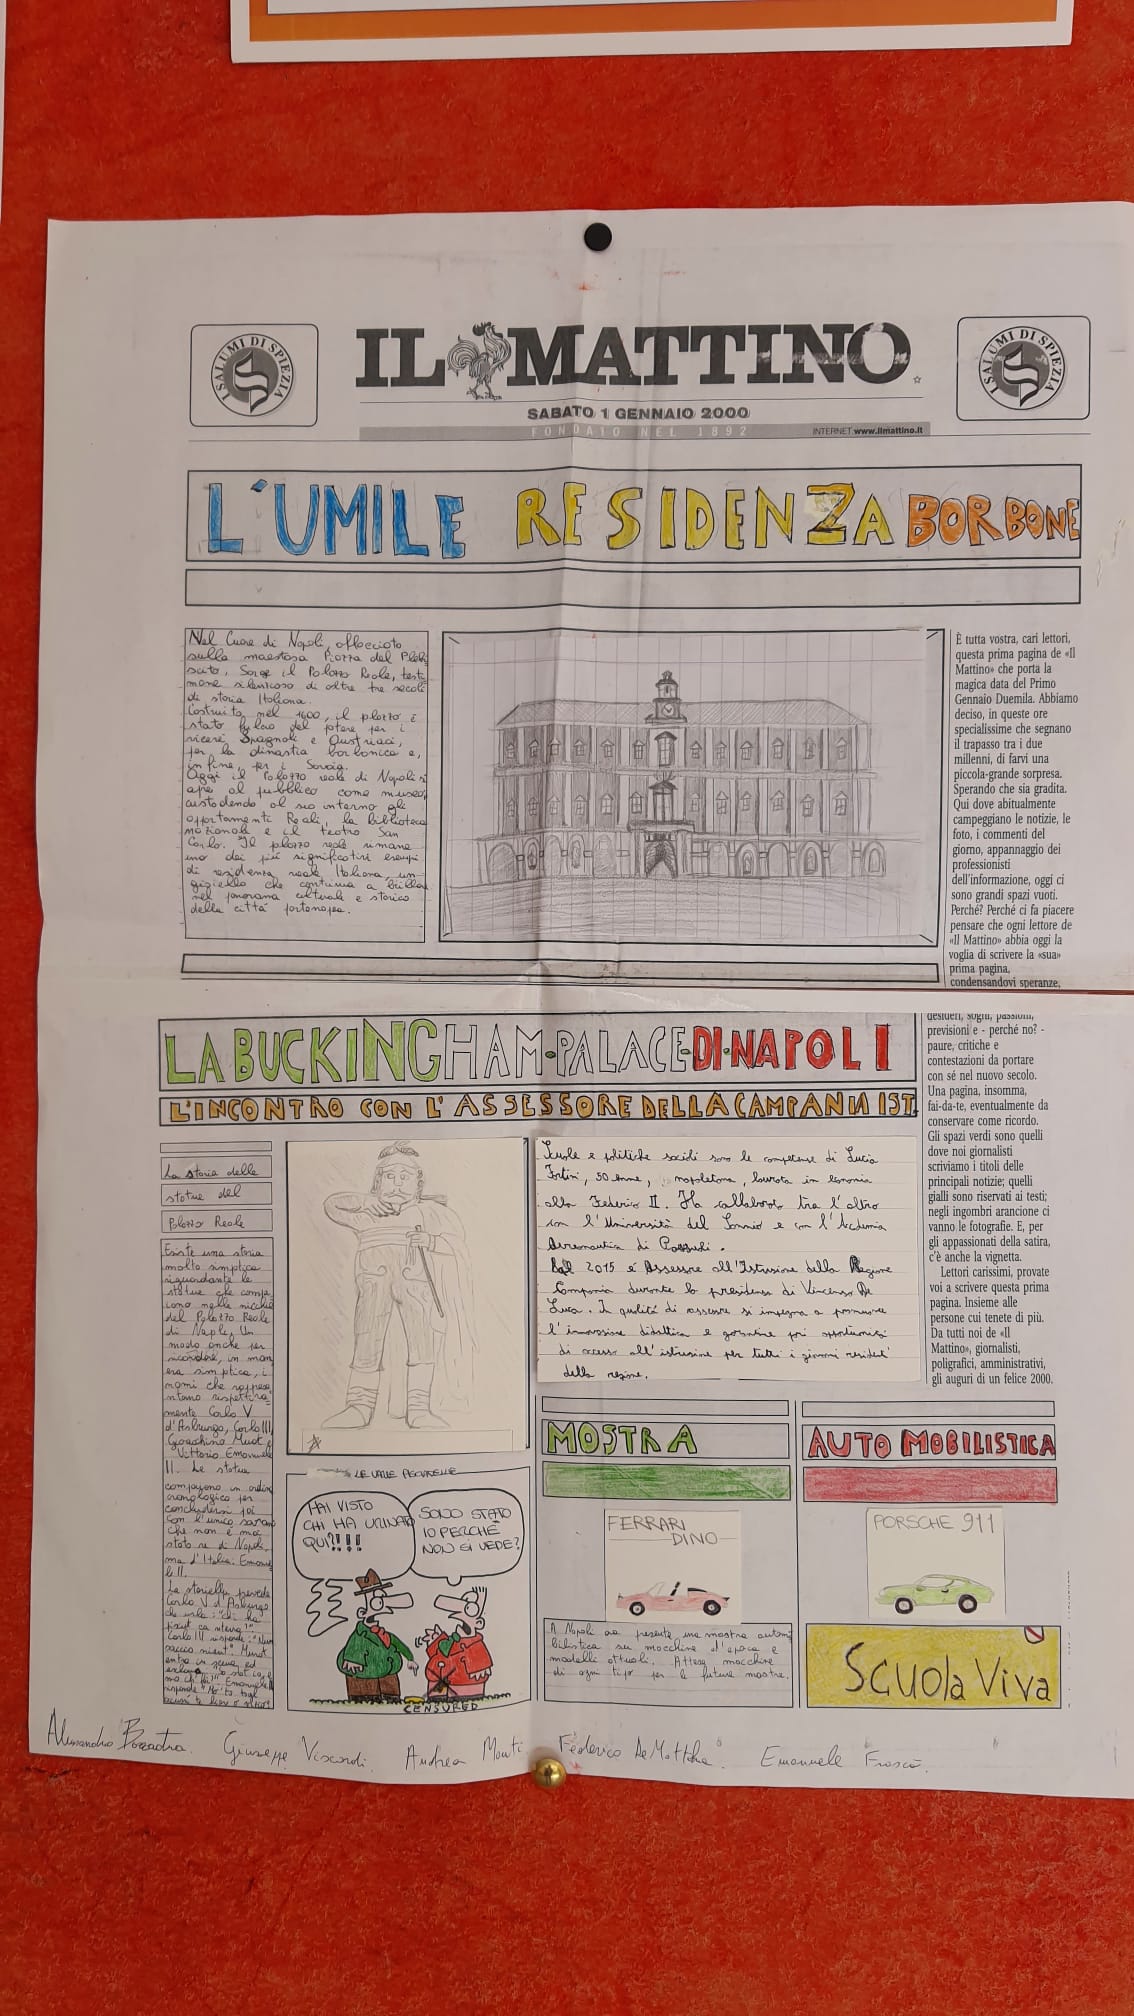 I SALUMI DI SPIEZIA
IL MATTINO
I SALUMI DI SPIEZIA
SABATO 1 GENNAIO 2000
FONDATO NEL 1892
INTERNET: www.ilmattino.it
L'UMILE RESIDENZA BORBONE
Nel Cuore di Napoli, affacciato
sulla maestosa Piazza del Plebi
scito, Sorge il Palazzo Reale, testi
mone silenzioso di oltre tre secoli
di storia Italiana.
Costruito nel 1600, il plazzo è
stato fulcro del potere per i
viceré Spagnoli e Austriaci,
per la dinastia borbonica e,
infine, per i Savoia.
Oggi il Palazzo reale di Napoli si
apre al pubblico come museo,
custodendo al suo interno gli
appartamenti Reali, la biblioteca
nazionale e il teatro San
Carlo. Il plazzo reale rimane
uno dei più significativi esempi
di residenza reale Italiana, un
gioiello che continua a brillare
nel panorama culturale e storico
della città partenopea.
È tutta vostra, cari lettori,
questa prima pagina de «Il
Mattino» che porta la
magica data del Primo
Gennaio Duemila. Abbiamo
deciso, in queste ore
specialissime che segnano
il trapasso tra i due
millenni, di farvi una
piccola-grande sorpresa.
Sperando che sia gradita.
Qui dove abitualmente
campeggiano le notizie, le
foto, i commenti del
giorno, appannaggio dei
professionisti
dell'informazione, oggi ci
sono grandi spazi vuoti.
Perché? Perché ci fa piacere
pensare che ogni lettore de
«Il Mattino» abbia oggi la
voglia di scrivere la «sua»
prima pagina,
condensandovi speranze,
desideri, sogni, passioni,
previsioni e - perché no? -
paure, critiche e
contestazioni da portare
con sé nel nuovo secolo.
Una pagina, insomma,
fai-da-te, eventualmente da
conservare come ricordo.
Gli spazi verdi sono quelli
dove noi giornalisti
scriviamo i titoli delle
principali notizie; quelli
gialli sono riservati ai testi;
negli ingombri arancione ci
vanno le fotografie. E, per
gli appassionati della satira,
c'è anche la vignetta.
Lettori carissimi, provate
voi a scrivere questa prima
pagina. Insieme alle
persone cui tenete di più.
Da tutti noi de «Il
Mattino», giornalisti,
poligrafici, amministrativi,
gli auguri di un felice 2000.
LA BUCKINGHAM·PALACE·DI·NAPOLI
L'INCONTRO CON L'ASSESSORE DELLA CAMPANIA IST.
La storia delle
statue del
Palazzo Reale
Esiste una storia
molto simptica
riguardante le
statue che
nelle nicchie
del Palazzo Reale
di Naple. Un
modo anche per
ricordare, in man
era simptica, i
nomi che rappese
ntano rispettiva
mente Carlo V
d'Asburgo, Carlo III,
Gioacchino Murat e
Vittorio Emanuele
II. Le statue
compaiono in ordine
cronologico per
concludersi poi
con l'unico
che non è mai
stato re di Napoli,
ma d'Italia: Emanue
le II.
La storiella prevede
Carlo V d'Asburgo
Carlo III risponde: "Nun
saccio nient". Murat
entra in scena, ed
Emanuele II
risponde
Scuole e politiche sociali sono le competenze di Lucia
Fortini, 50 enne, napoletana, laureata in economia
alla Federico II. Ha collaborato tra l'altro
con l'Università del Sannio e con l'Academia
Aeronautica di Pozzuoli.
Dal 2015 è Assessore all'Istruzione della Regione
Campania durante la presidenza di Vincenzo De
Luca. In qualità di assessore si impegna a promuovere
l'innovazione didattica e garantire pari opportunità
di accesso all'istruzione per tutti i giovani residenti
della regione.
HAI VISTO
CHI HA URINATO
QUI?!!!
SONO STATO
IO PERCHÉ
NON SI VEDE?
CENSURED
MOSTRA
AUTOMOBILISTICA
FERRARI
DINO
PORSCHE 911
A Napoli presente una mostra automo
bilistica su macchine d'epoca e
modelli attuali. Attese macchine
di ogni tipo per le future mostre.
SCUOLA VIVA
Alessandro
Giuseppe Viscardi.
Andrea Monti
Federico De
Emanuele Frasca.